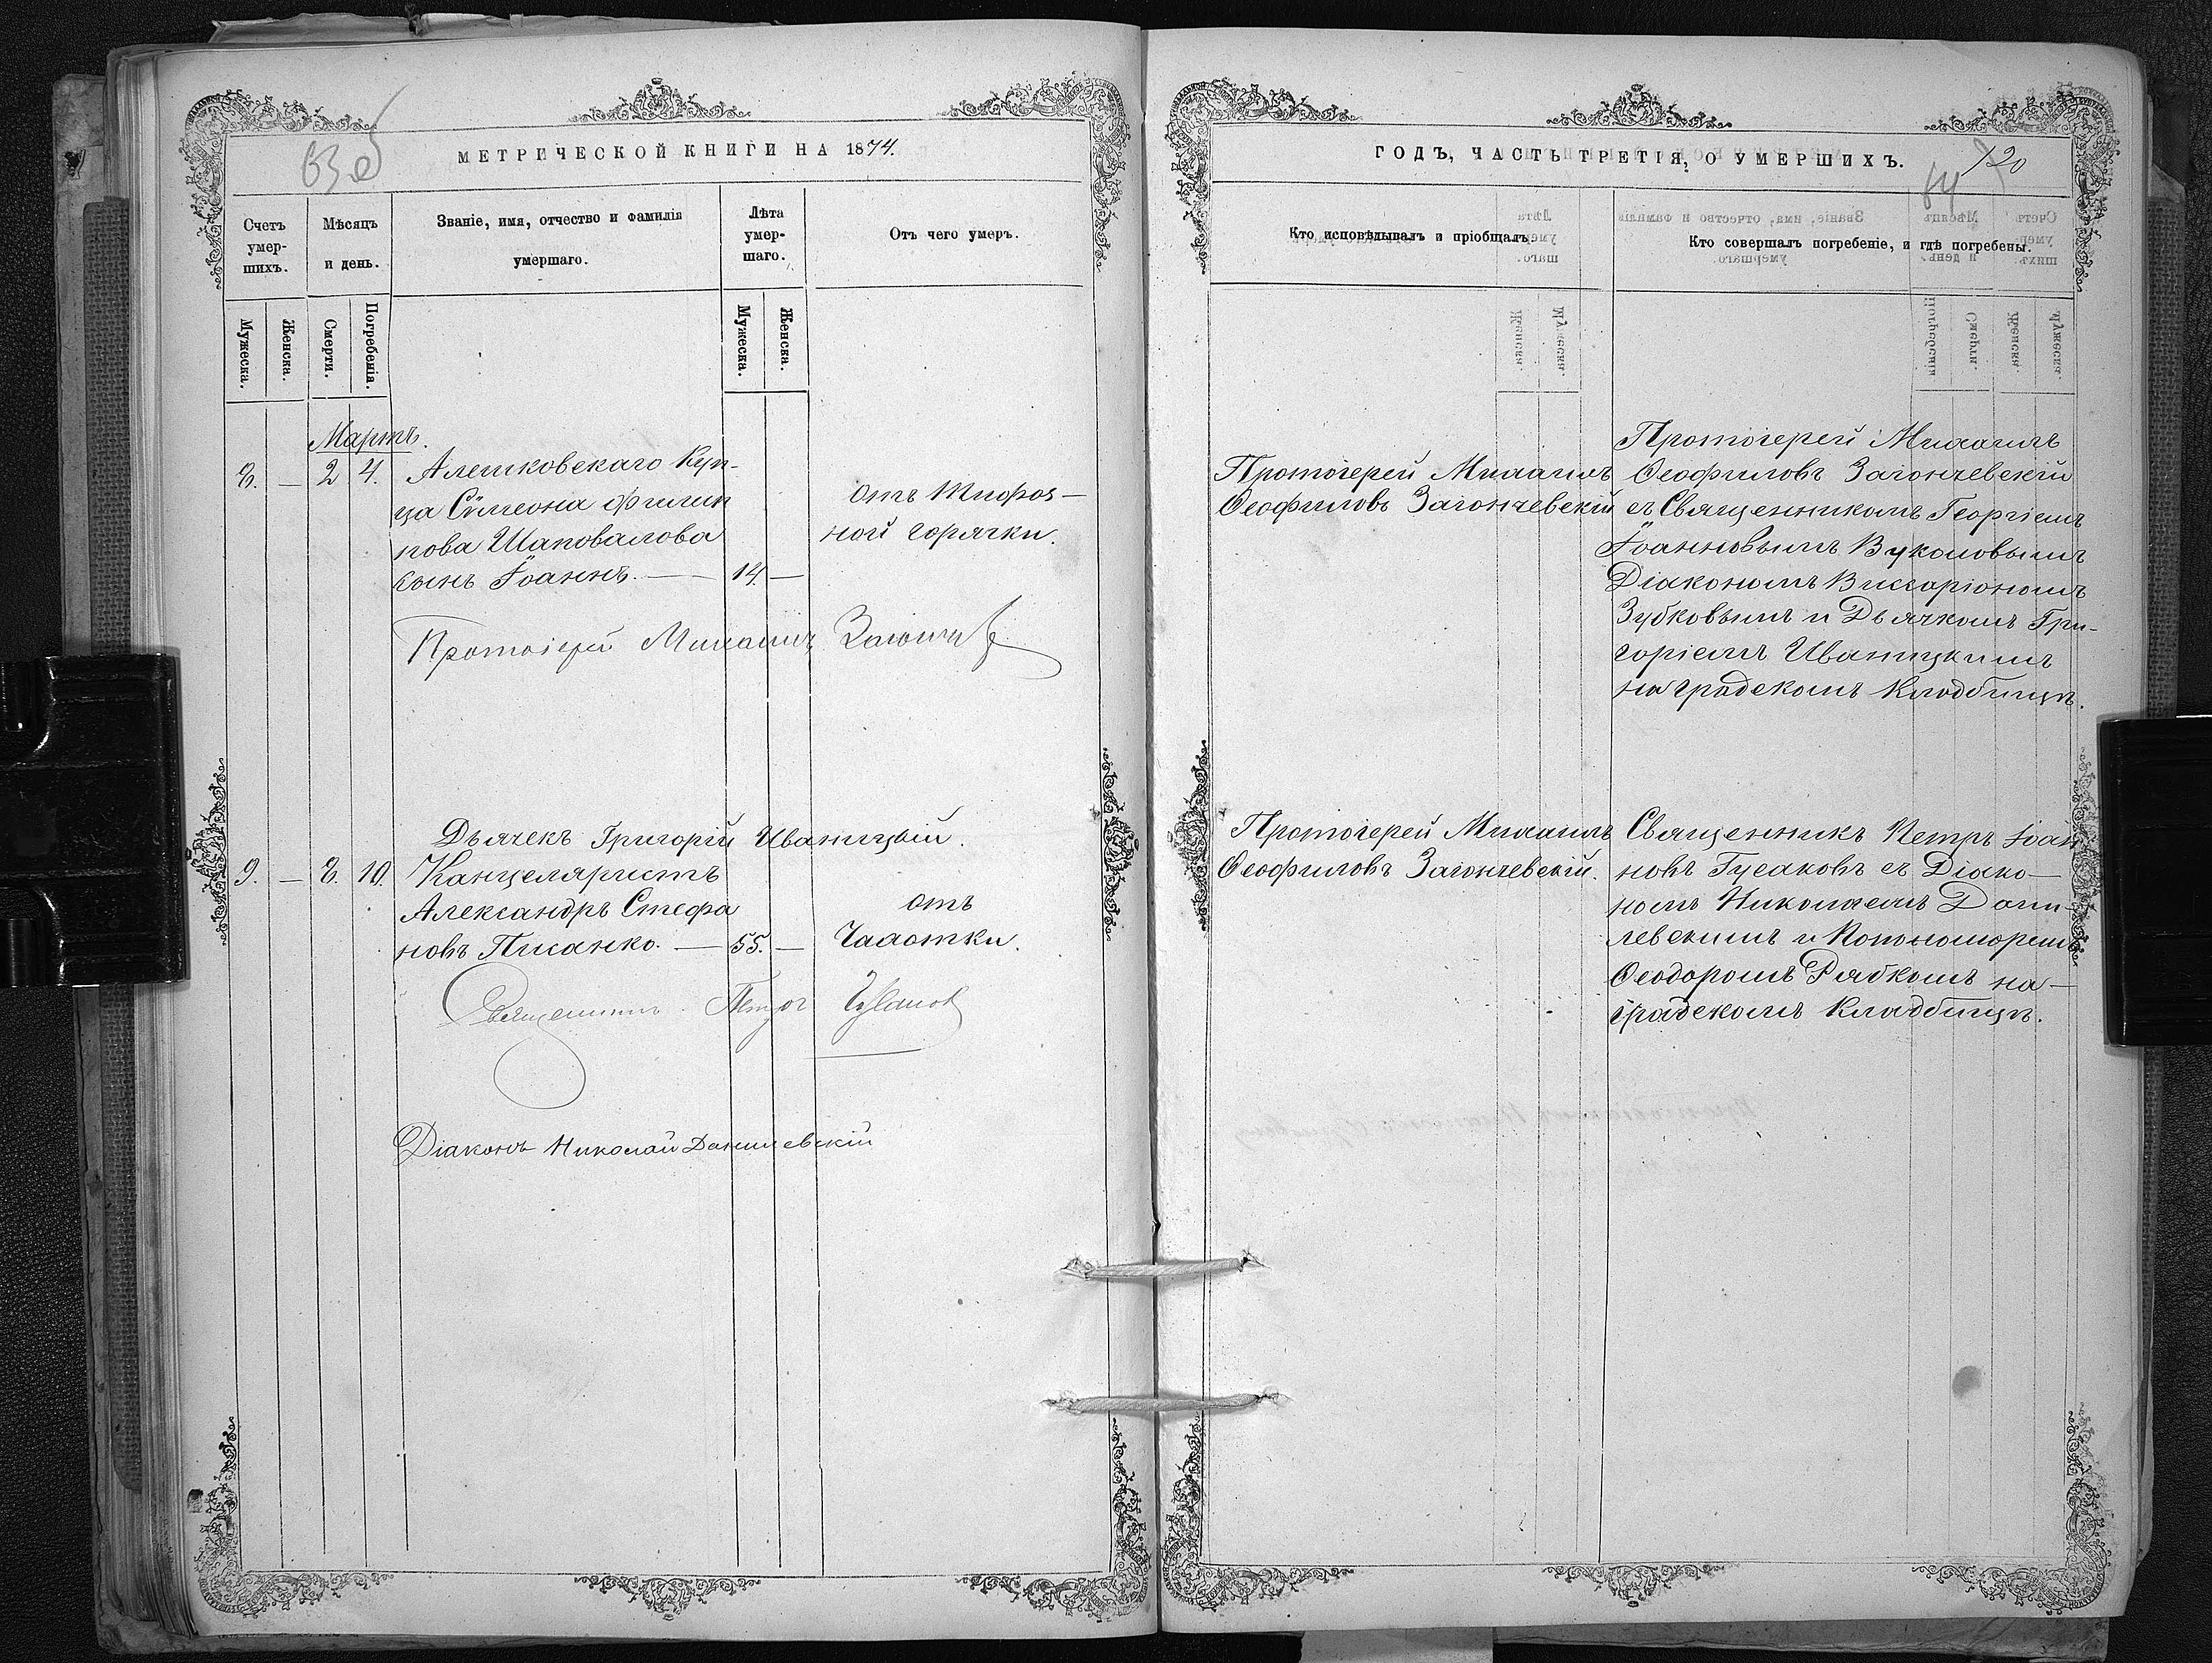 МЕТРИЧЕСКОЙ КНИГИ НА 1874.
Счетъ умер-шихъ.
Мѣсяцъ и день.
Званіе, имя, отчество и фамилія умершаго.
Лѣта умер-шаго.
Отъ чего умеръ.
Мужеска.
Женска.
Смерти.
Погребенія.
Мужеска.
Женска.
Мартъ.
8. — 2 4. Алешковскаго Куп-
ца Сѵмеона Филип
пова Шаповалова
сынъ Іоаннъ. — 14 —
отъ Тифоз—
ной горячки.
Протоіерей Михаилъ
Дьячекъ Григорій Иваницкій.
9. — 8. 10. Канцеляристъ
Александръ Стефа
новъ Писанко. — 55. —
отъ
Чахотки.
Священникъ Петръ Гусаков
Діаконъ Николай Данилевскій
ГОДЪ, ЧАСТЬ ТРЕТІЯ, О УМЕРШИХЪ.
120
64
Кто исповѣдывалъ и пріобщалъ.
Кто совершалъ погребеніе, и гдѣ погребены.
Протоіерей Михаилъ
Ѳеофиловъ Загончевскій
Протоіерей Михаилъ
Ѳеофиловъ Загончевскій
съ Священникомъ Георгіемъ
Іоанновымъ Вуколовымъ
Діакономъ Виссаріономъ
Зубковымъ и Дьячкомъ Гри-
горіемъ Иваницкимъ
на градскомъ Кладбищѣ.
Протоіерей Михаилъ
Ѳеофиловъ Загончевскій.
Священникъ Петръ Іоан
новъ Гусаковъ съ Діако—
номъ Николаемъ Дани—
левскимъ и Пономоремъ
Ѳеодоромъ Рябкомъ на—
градскомъ Кладбищѣ.